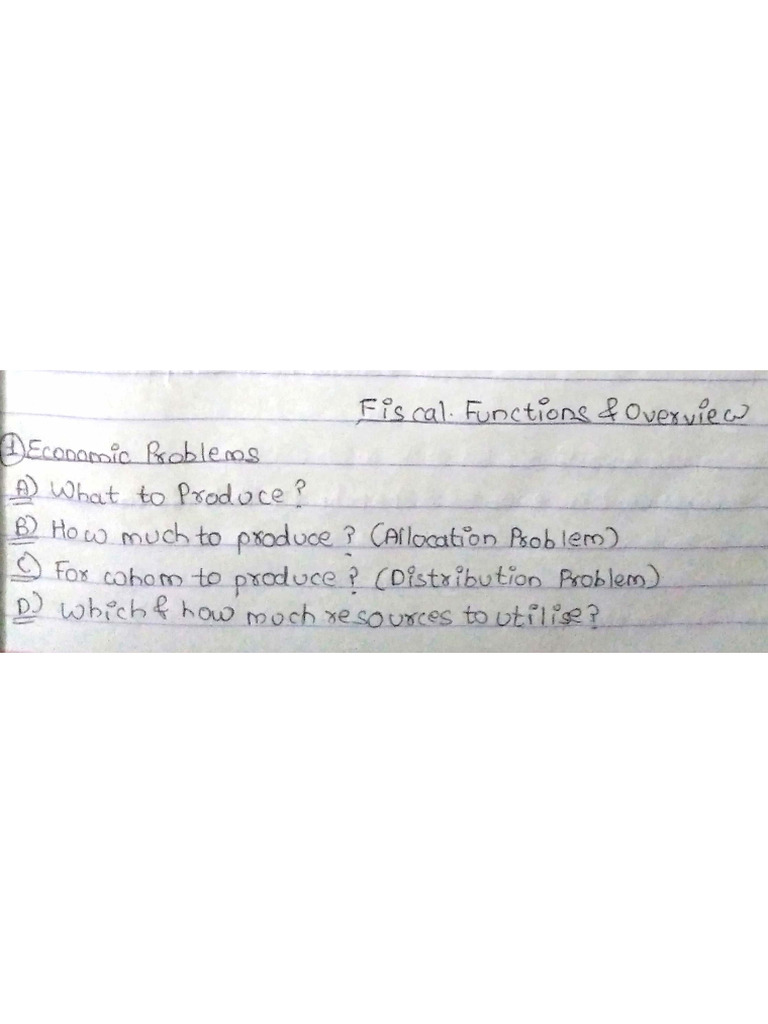 Fiscal. Functions & Overview
① Economic Problems
A) What to Produce?
B) How much to produce? (Allocation Problem)
C) For whom to produce? (Distribution Problem)
D) Which & how much resources to utilise?